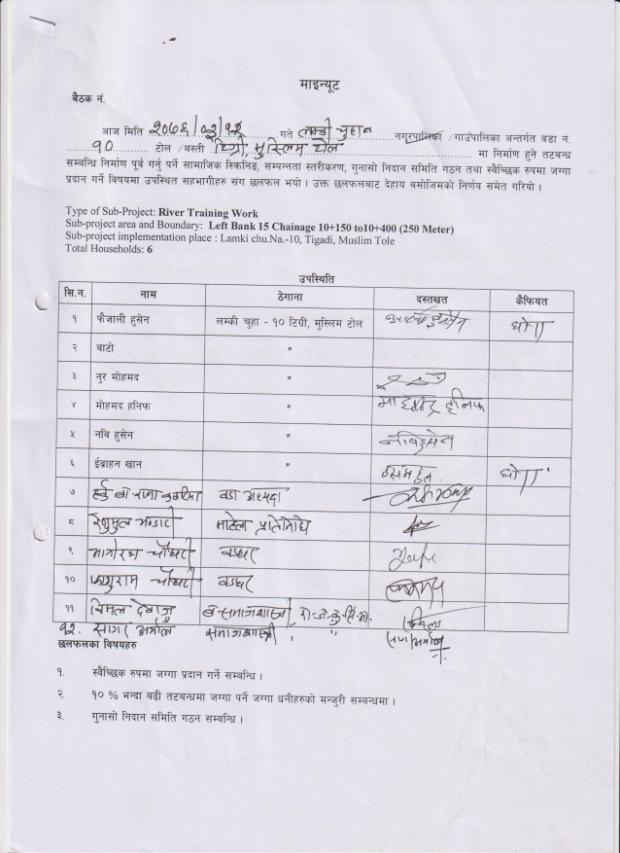 माइन्यूट
बैठक नं.
आज मिति २०७६/०३/१२ गते लम्की चुहा नगरपालिका /गाउँपालिका अन्तर्गत वडा नं.
१० टोल /वस्ती टिग्री, मुस्लिम टोल मा निर्माण हुने तटबन्ध
सम्बन्धि निर्माण पूर्व गर्नु पर्ने सामाजिक स्किनिङ, सम्पन्नता स्तरीकरण, गुनासो निदान समिति गठन तथा स्वैच्छिक रुपमा जग्गा
प्रदान गर्ने विषयमा उपस्थित सहभागीहरु संग छलफल भयो । उक्त छलफलबाट देहाय बमोजिमको निर्णय समेत गरियो ।
Type of Sub-Project: River Training Work
Sub-project area and Boundary: Left Bank 15 Chainage 10+150 to10+400 (250 Meter)
Sub-project implementation place : Lamki chu.Na.-10, Tigadi, Muslim Tole
Total Households: 6
उपस्थिति
सि.न. नाम ठेगाना दस्तखत कैफियत
१ फैजाली हुसेन लम्की चुहा - १० टिग्री, मुस्लिम टोल
२ बाटो "
३ नुर मोहमद "
४ मोहमद हनिफ " हनिफ
५ नवि हुसेन " नविहुसेन
६ ईब्राहन खान "
७ वडा अध्यक्ष
८ महिला प्रतिनिधि
९ चौधरी बडघर
१० चौधरी बडघर
११
१२. सागर समाजशास्त्री "
छलफलका विषयहरु
१. स्वैच्छिक रुपमा जग्गा प्रदान गर्ने सम्बन्धि ।
२. १० % भन्दा बढी तटबन्धमा जग्गा पर्ने जग्गा धनीहरुको मन्जुरी सम्बन्धमा ।
३. गुनासो निदान समिति गठन सम्बन्धि ।